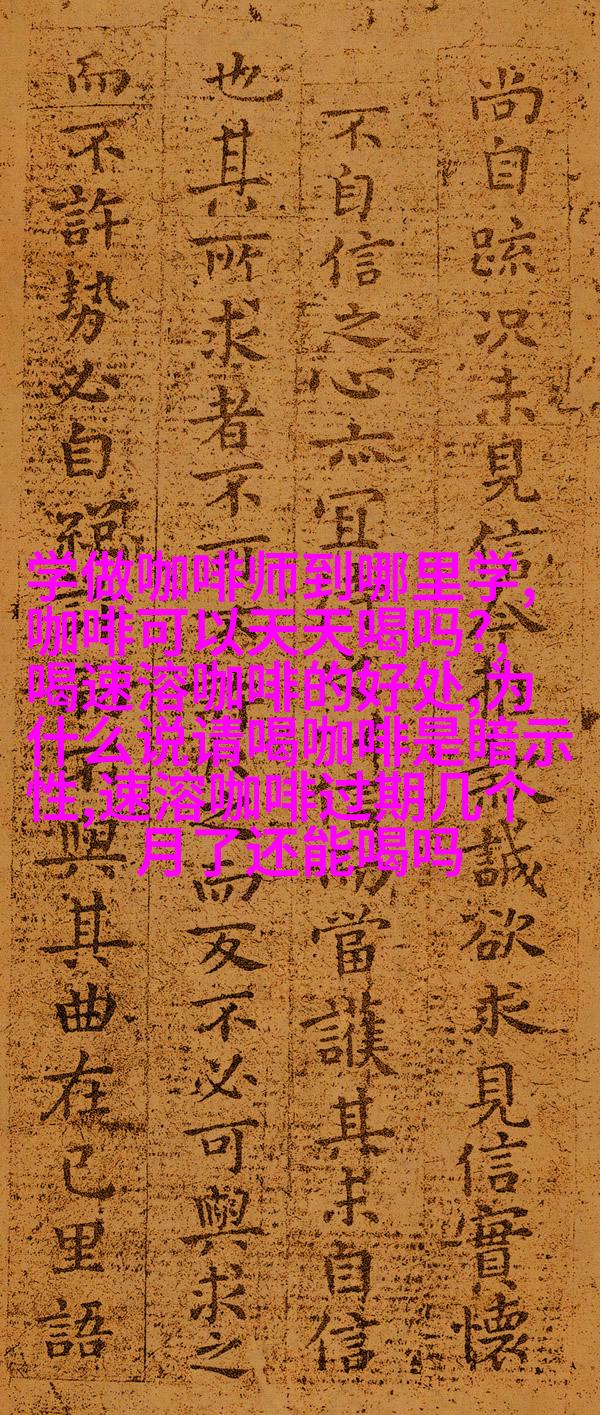 尚自疏况未見信今
誠欲求見信實懷
不自信之心亦宜
當護其未自信
也其所求者不可
之而反不必可與求之
而不許勢必自
與其曲在己里語
学做咖啡师到哪里学,
咖啡可以天天喝吗?,
喝速溶咖啡的好处,为
什么说请喝咖啡是暗示
性,速溶咖啡过期几个
月了还能喝吗